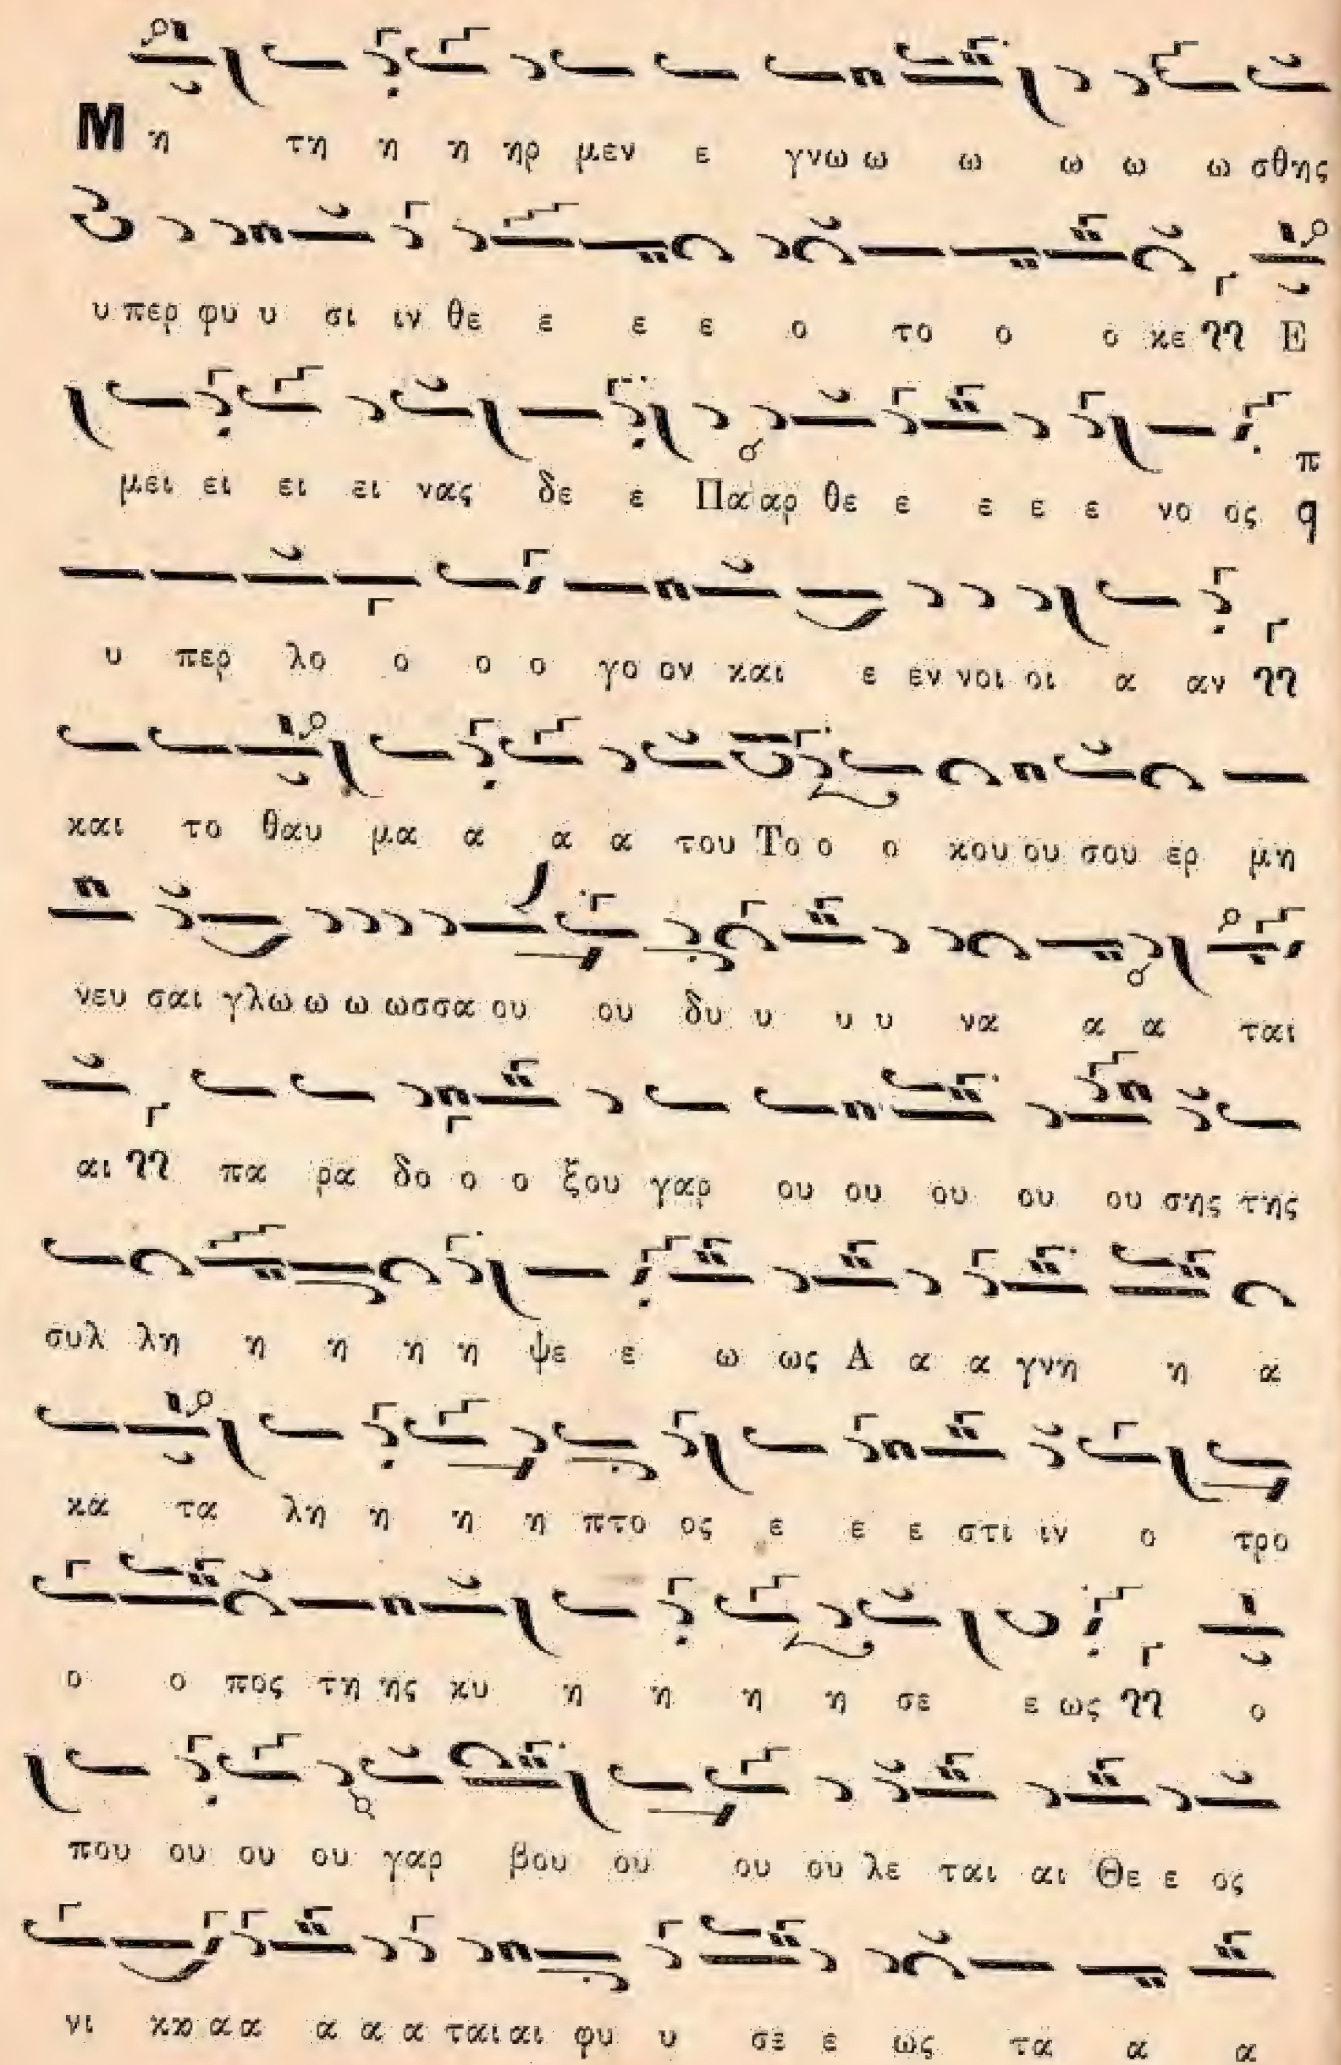 Μ η τη η η ηρ μεν ε γνω ω ω ω ω ω σθης
υ περ φυ υ σι ιν θε ε ε ε ο το ο ο κε Ε
μει ει ει ει νας δε ε Πα αρ θε ε ε ε ε νο ος π q
υ περ λο ο ο ο γο ον και ε εν νοι οι α αν
και το θαυ μα α α α του Το ο ο κου ου σου ερ μη
νευ σαι γλω ω ω ωσσα ου ου δυ υ υ υ να α α ται
αι πα ρα δο ο ο ξου γαρ ου ου ου ου ου σης της
συλ λη η η η η ψε ε ω ως Α α α γνη η α
κα τα λη η η η πτο ος ε ε ε στι ιν ο τρο
ο ο πος τη ης κυ η η η η σε ε ως ο
που ου ου ου γαρ βου ου ου ου λε ται αι Θε ε ος
νι κα α α α α α ται αι φυ υ σε ε ως τα α α